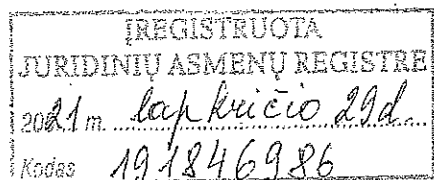 ĮREGISTRUOTA
JURIDINIŲ ASMENŲ REGISTRE
2021 m. lapkričio 29 d.
Kodas 191846986